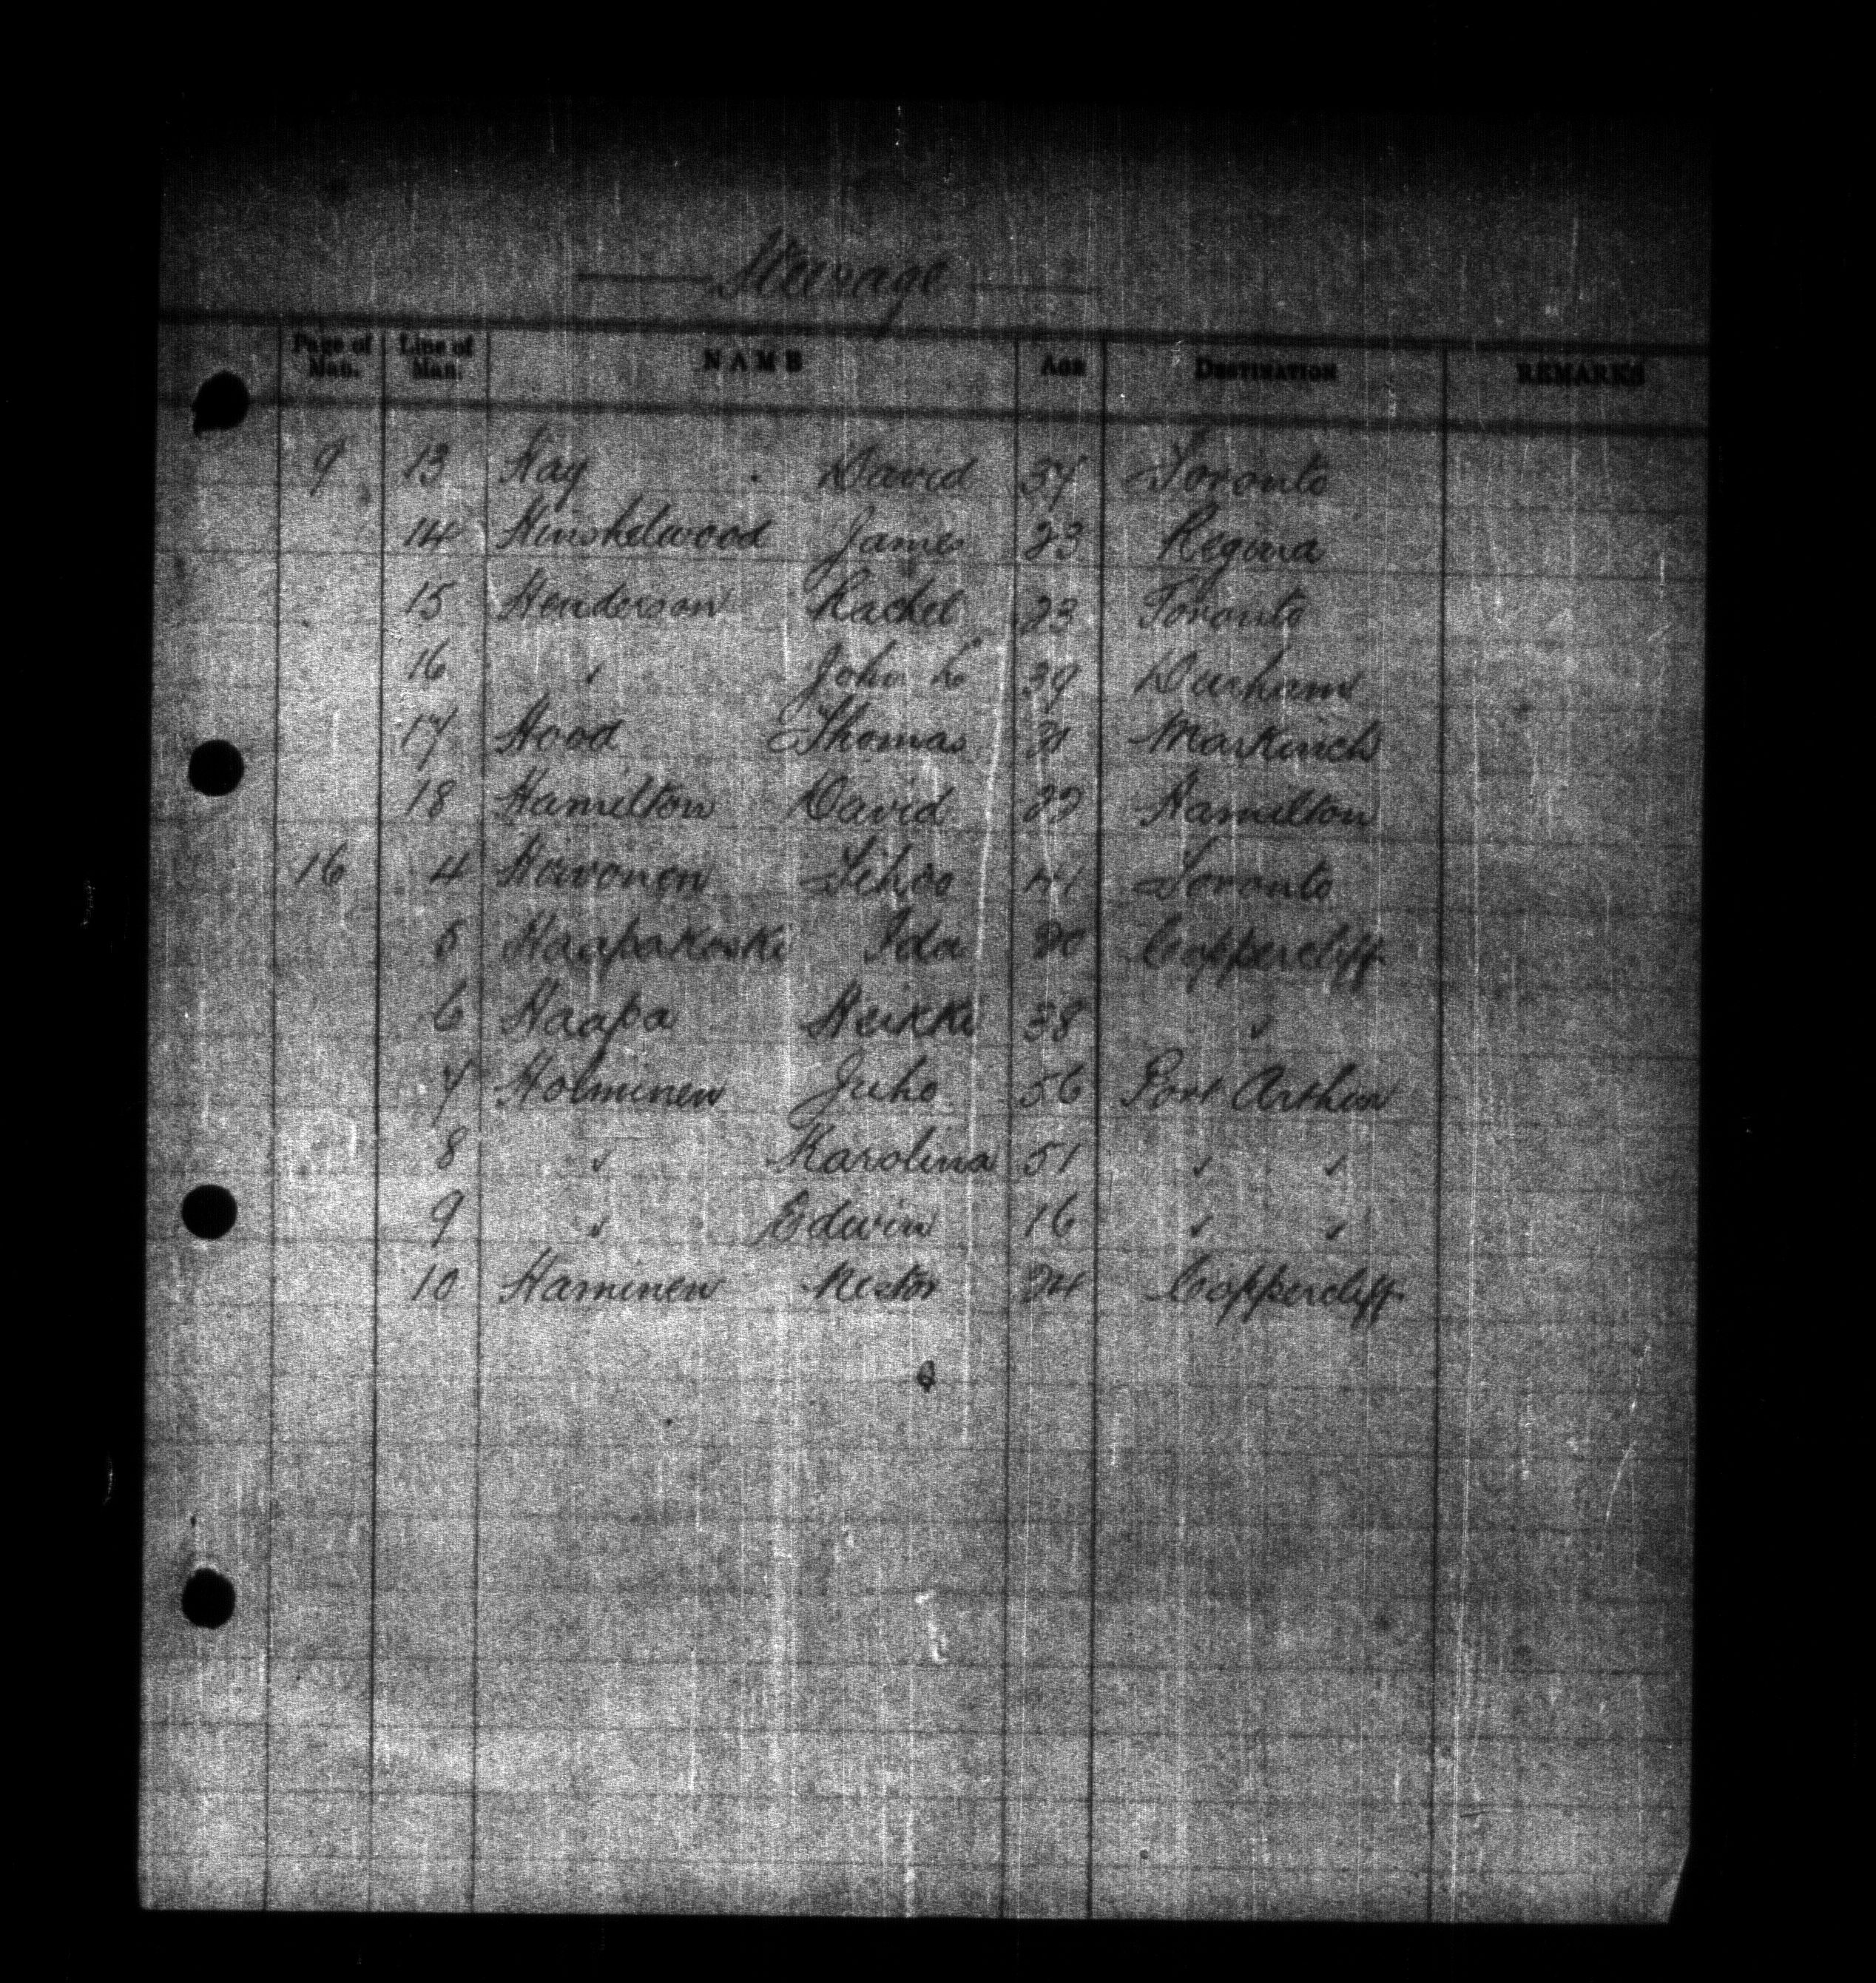 Steerage
Page of Man. Line of Man. NAME AGE DESTINATION REMARKS
9 13 Hay David 37 Toronto
14 Hinshelwood James 23 Regina
15 Henderson Rachel 23 Toronto
16 " John L 39 Durham
17 Hood Thomas 31 Markinch
18 Hamilton David Hamilton
16 4 Hovonen Toronto
5 Haapakoski Ida 20 Coppercliff
6 Haapa Heikki 38 "
7 Holminen Juho 56 Port Arthur
8 " Karolina 51 " "
9 " Edwin 16 " "
10 Haminen Nestor 24 Coppercliff